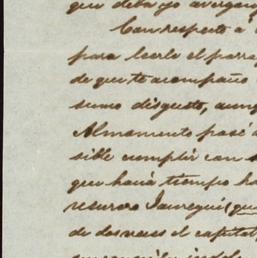 que deba yo avergon
Con respecto a
para leerle el parra
de que te acompaño
sumo disgusto, aun
Almamento pasé a
sible cumplir con
que hacia tiempo ha
resurara Jauregui (que
de dos veces el capital